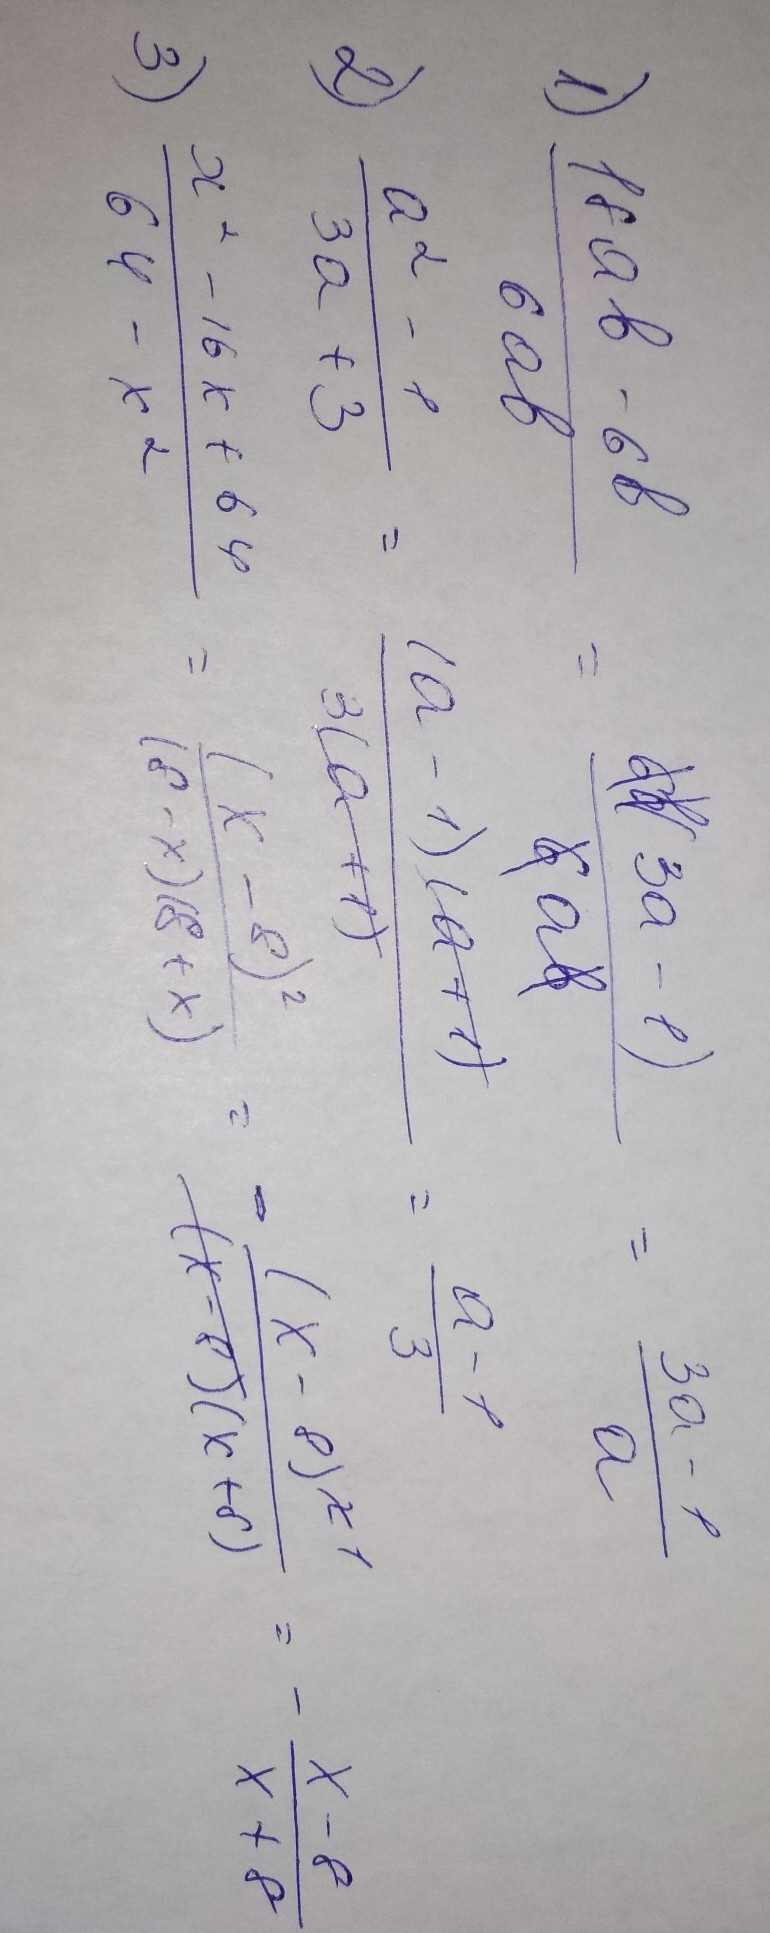 1) (18ab - 6b)/(6ab) = (6b(3a - 1))/(6ab) = (3a - 1)/a
2) (a² - 1)/(3a + 3) = ((a - 1)(a + 1))/(3(a + 1)) = (a - 1)/3
3) (x² - 16x + 64)/(64 - x²) = (x - 8)²/((8 - x)(8 + x)) = - (x - 8)²¹/((x - 8)(x + 8)) = - (x - 8)/(x + 8)